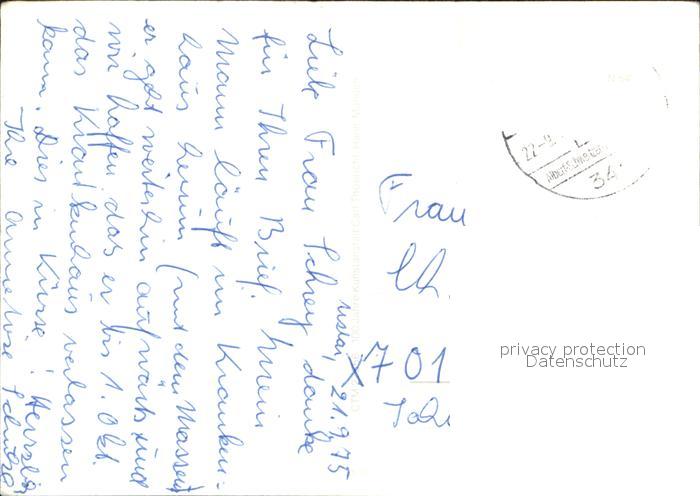 Uslar, 21.9.75
Liebe Frau Schrey danke
für Ihren Brief. Mein
Mann läuft im Kranken-
haus herum (mit dem Masseur)
er geht weiterhin aufwärts und
wir hoffen das er bis 1. Okt.
das Krankenhaus verlassen
kann. Dies in Kürze! Herzlich
Ihre Anneliese
Frau
Ch.
701
22-9
34
privacy protection
Datenschutz